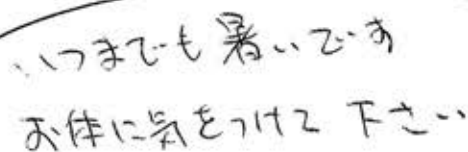 いつまでも暑いです
お体に気をつけて下さい